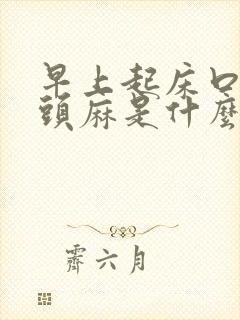 早上起床口
頭麻是什麼
霽六月